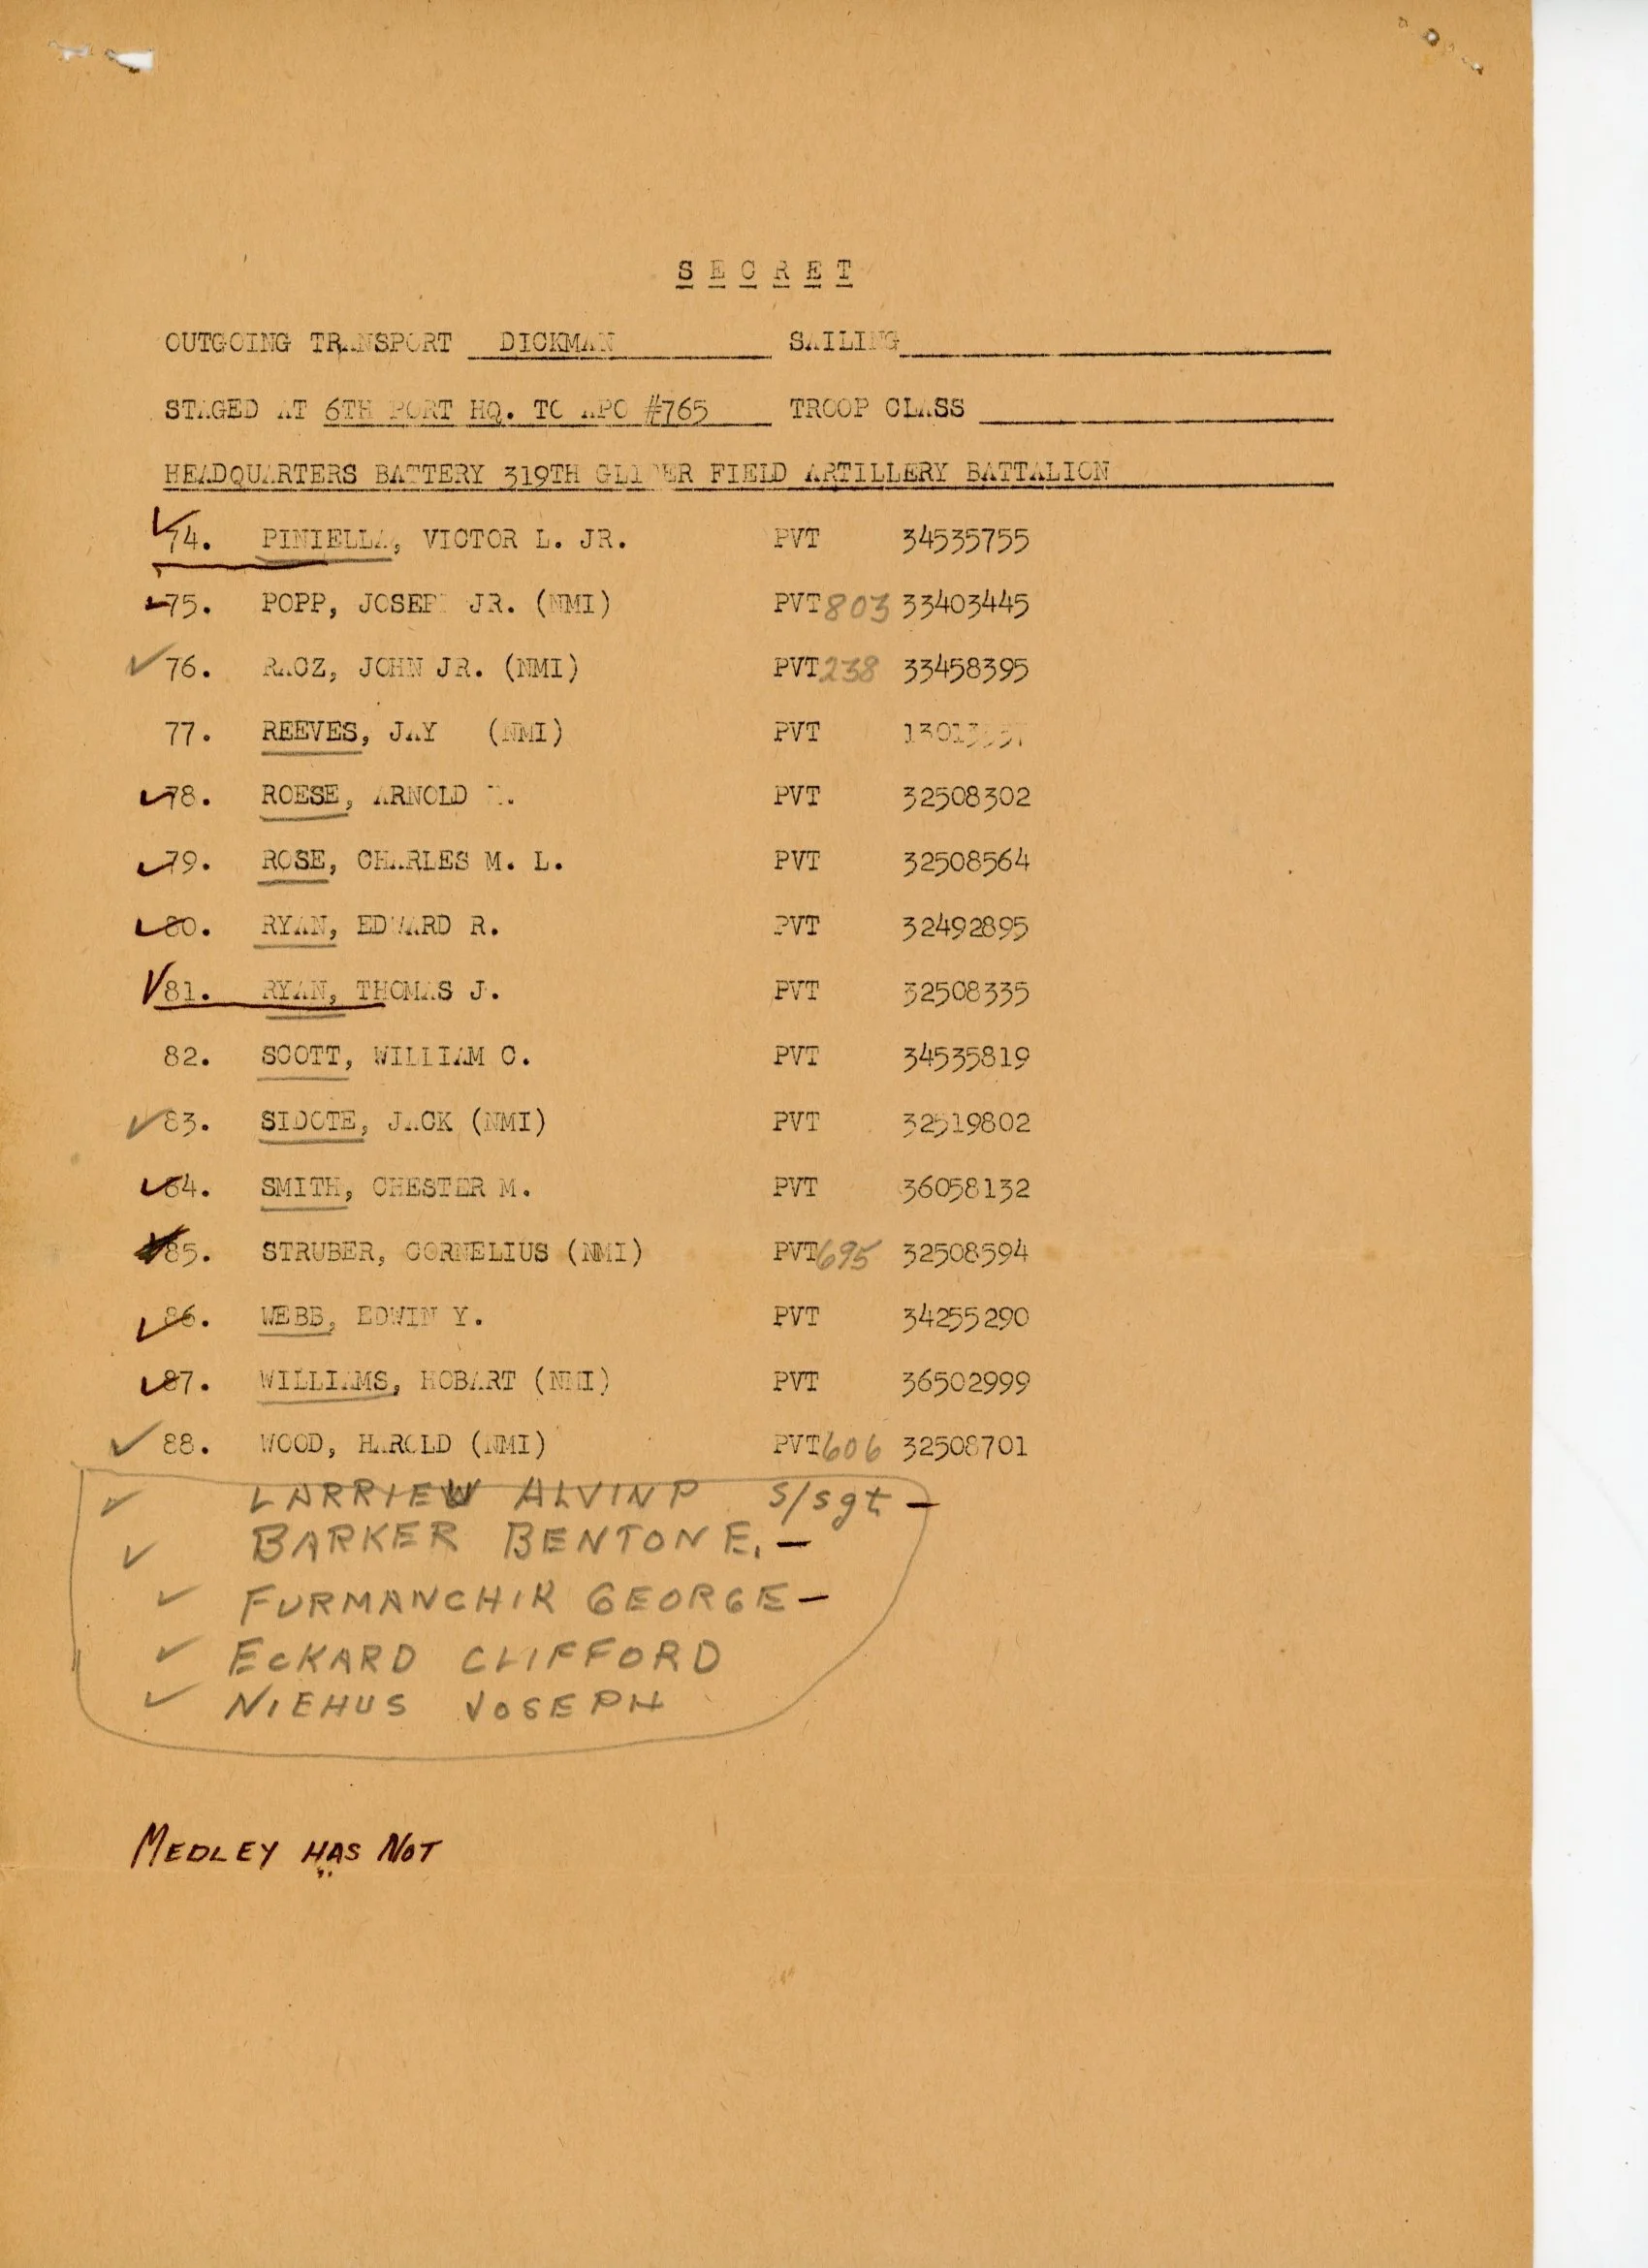 S E C R E T
OUTGOING TRANSPORT DICKMAN SAILING
STAGED AT 6TH PORT HQ. TO APO #765 TROOP CLASS
HEADQUARTERS BATTERY 319TH GLIDER FIELD ARTILLERY BATTALION
74. PINIELLA, VICTOR L. JR. PVT 34535755
75. POPP, JOSEPH JR. (NMI) PVT 803 33403445
76. RACZ, JOHN JR. (NMI) PVT 238 33458395
77. REEVES, JAY (NMI) PVT
78. ROESE, ARNOLD PVT 32508302
79. ROSE, CHARLES M. L. PVT 32508564
80. RYAN, EDWARD R. PVT 32492895
81. RYAN, THOMAS J. PVT 32508335
82. SCOTT, WILLIAM C. PVT 34535819
83. SIDOTE, JACK (NMI) PVT 32519802
84. SMITH, CHESTER M. PVT 36058132
85. STRUBER, CORNELIUS (NMI) PVT 695 32508594
86. WEBB, EDWIN Y. PVT 34255290
87. WILLIAMS, HOBART (NMI) PVT 36502999
88. WOOD, HAROLD (NMI) PVT 606 32508701
LARRIEW ALVIN P S/Sgt -
BARKER BENTON E. -
FURMANCHIK GEORGE -
ECKARD CLIFFORD
NIEHUS JOSEPH
MEDLEY HAS NOT